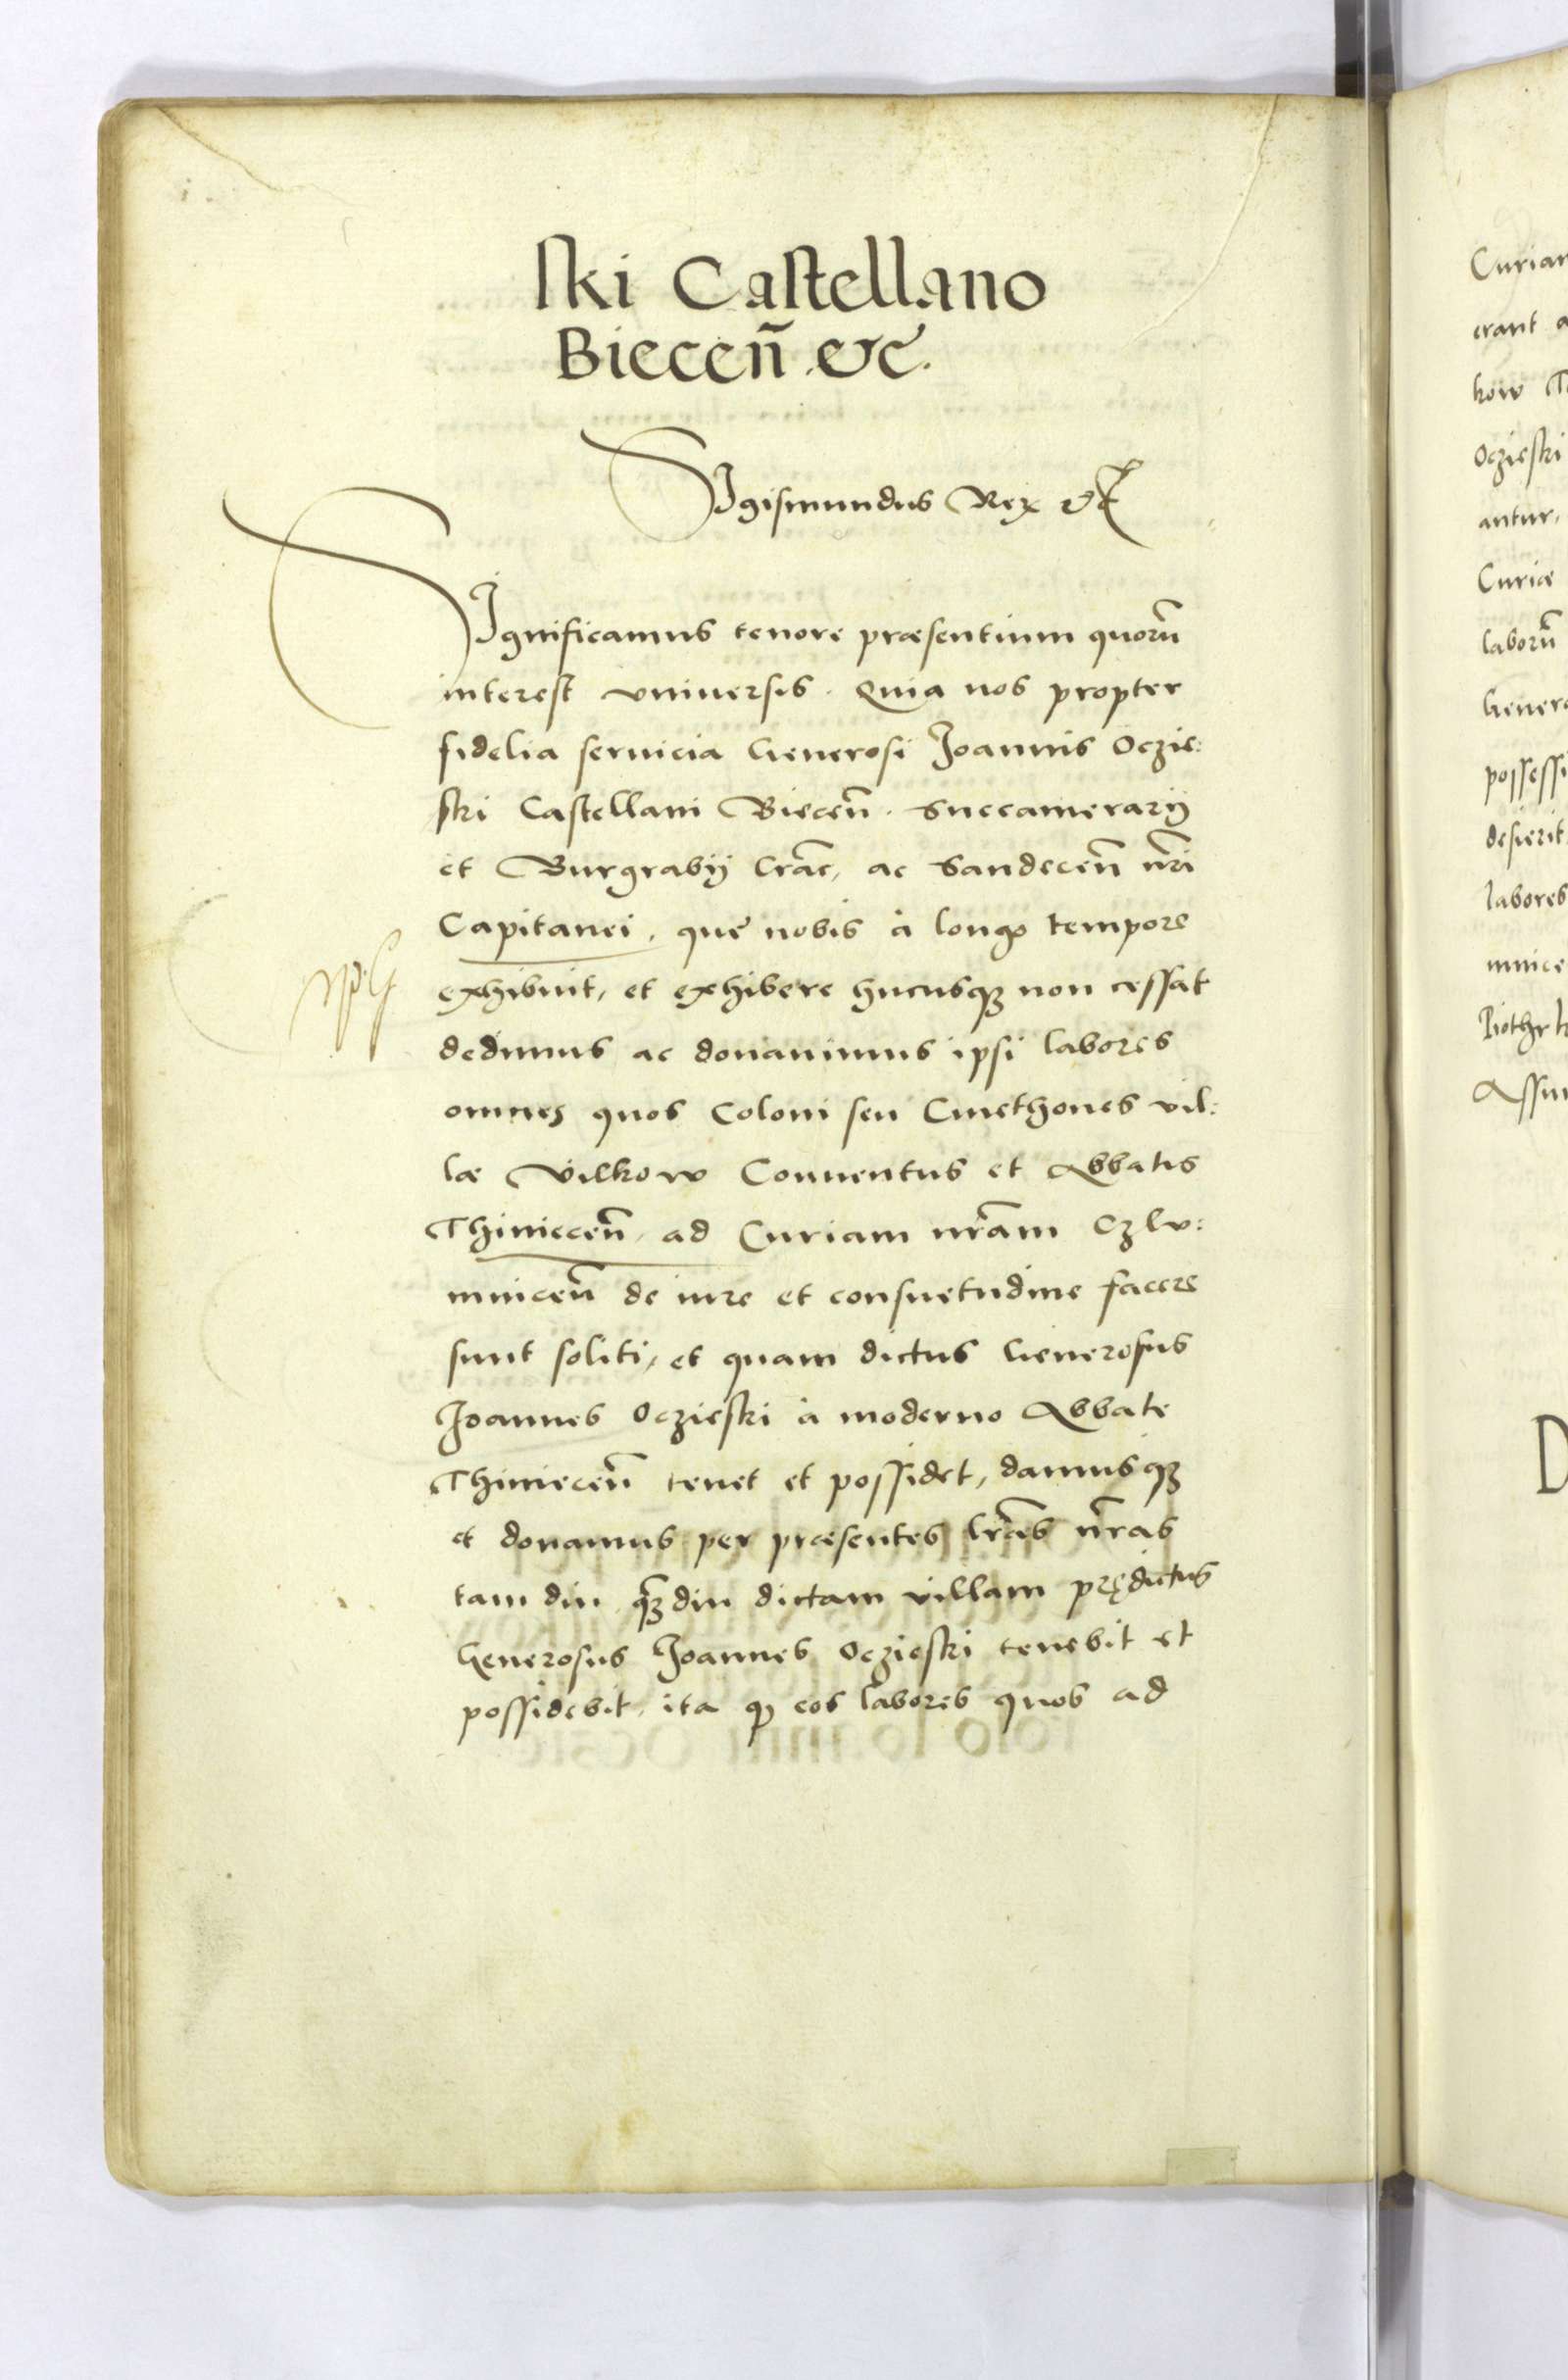 ski Castellano
Biecen̄ etc.
Sigismundus Rex etc
Significamus tenore præsentium quorū
interest vniuersis. Quia nos propter
fidelia seruicia Generosi Joannis Oczie:
ski Castellani Biecen̄. Succamerarij
et Burgrabij Crac̄, ac Sandecen̄ nr̄i
Capitanei, que nobis à longo tempore
exhibuit, et exhibere hucusq₃ non cessat
dedimus ac donauimus ipsi labores
omnes quos Coloni seu Cmethones vil:
læ Vilkow Conuentus et Abbatis
Thiniecen̄, ad Curiam nr̄am Czlv:
minicen̄ de iure et consuetudine facere
sunt soliti, et quam dictus Generosus
Joannes Oczieski à moderno Abbate
Thiniecen̄ tenet et possidet, damusq₃
et donamus per præsentes lr̄as nr̄as
tam diu q̄₃diu dictam villam prędictus
Generosus Joannes Oczieski tenebit et
possidebit, ita ꝙ eos labores quos ad
Curiam
erant a
kow
Oczieski
antur,
Curiæ
laborū
Genero
possessi
desierit
labores
minice
Assu
D